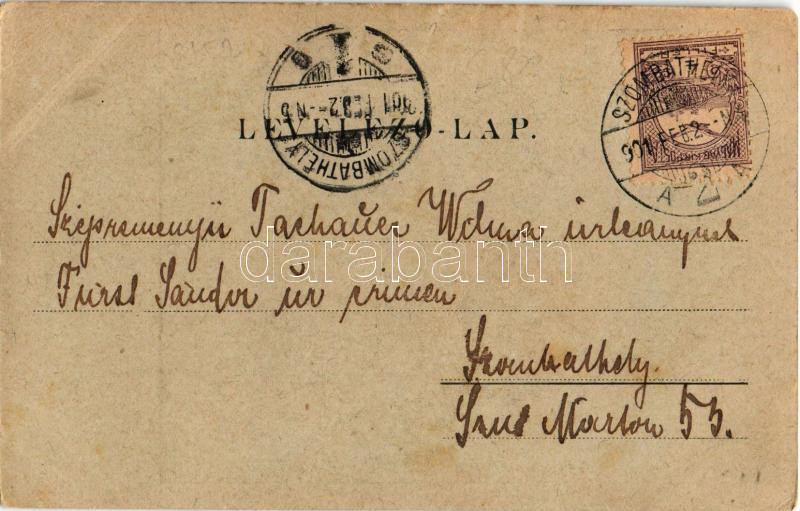 LEVELEZŐ-LAP.
SZOMBATHELY
901 FEB. 2.
SZOMBATHELY
901 FEB. 2
Tachauer Wilma úrleánynak
Fürst Sándor úr címen
darabanth
Szombathely.
Szent Márton 53.